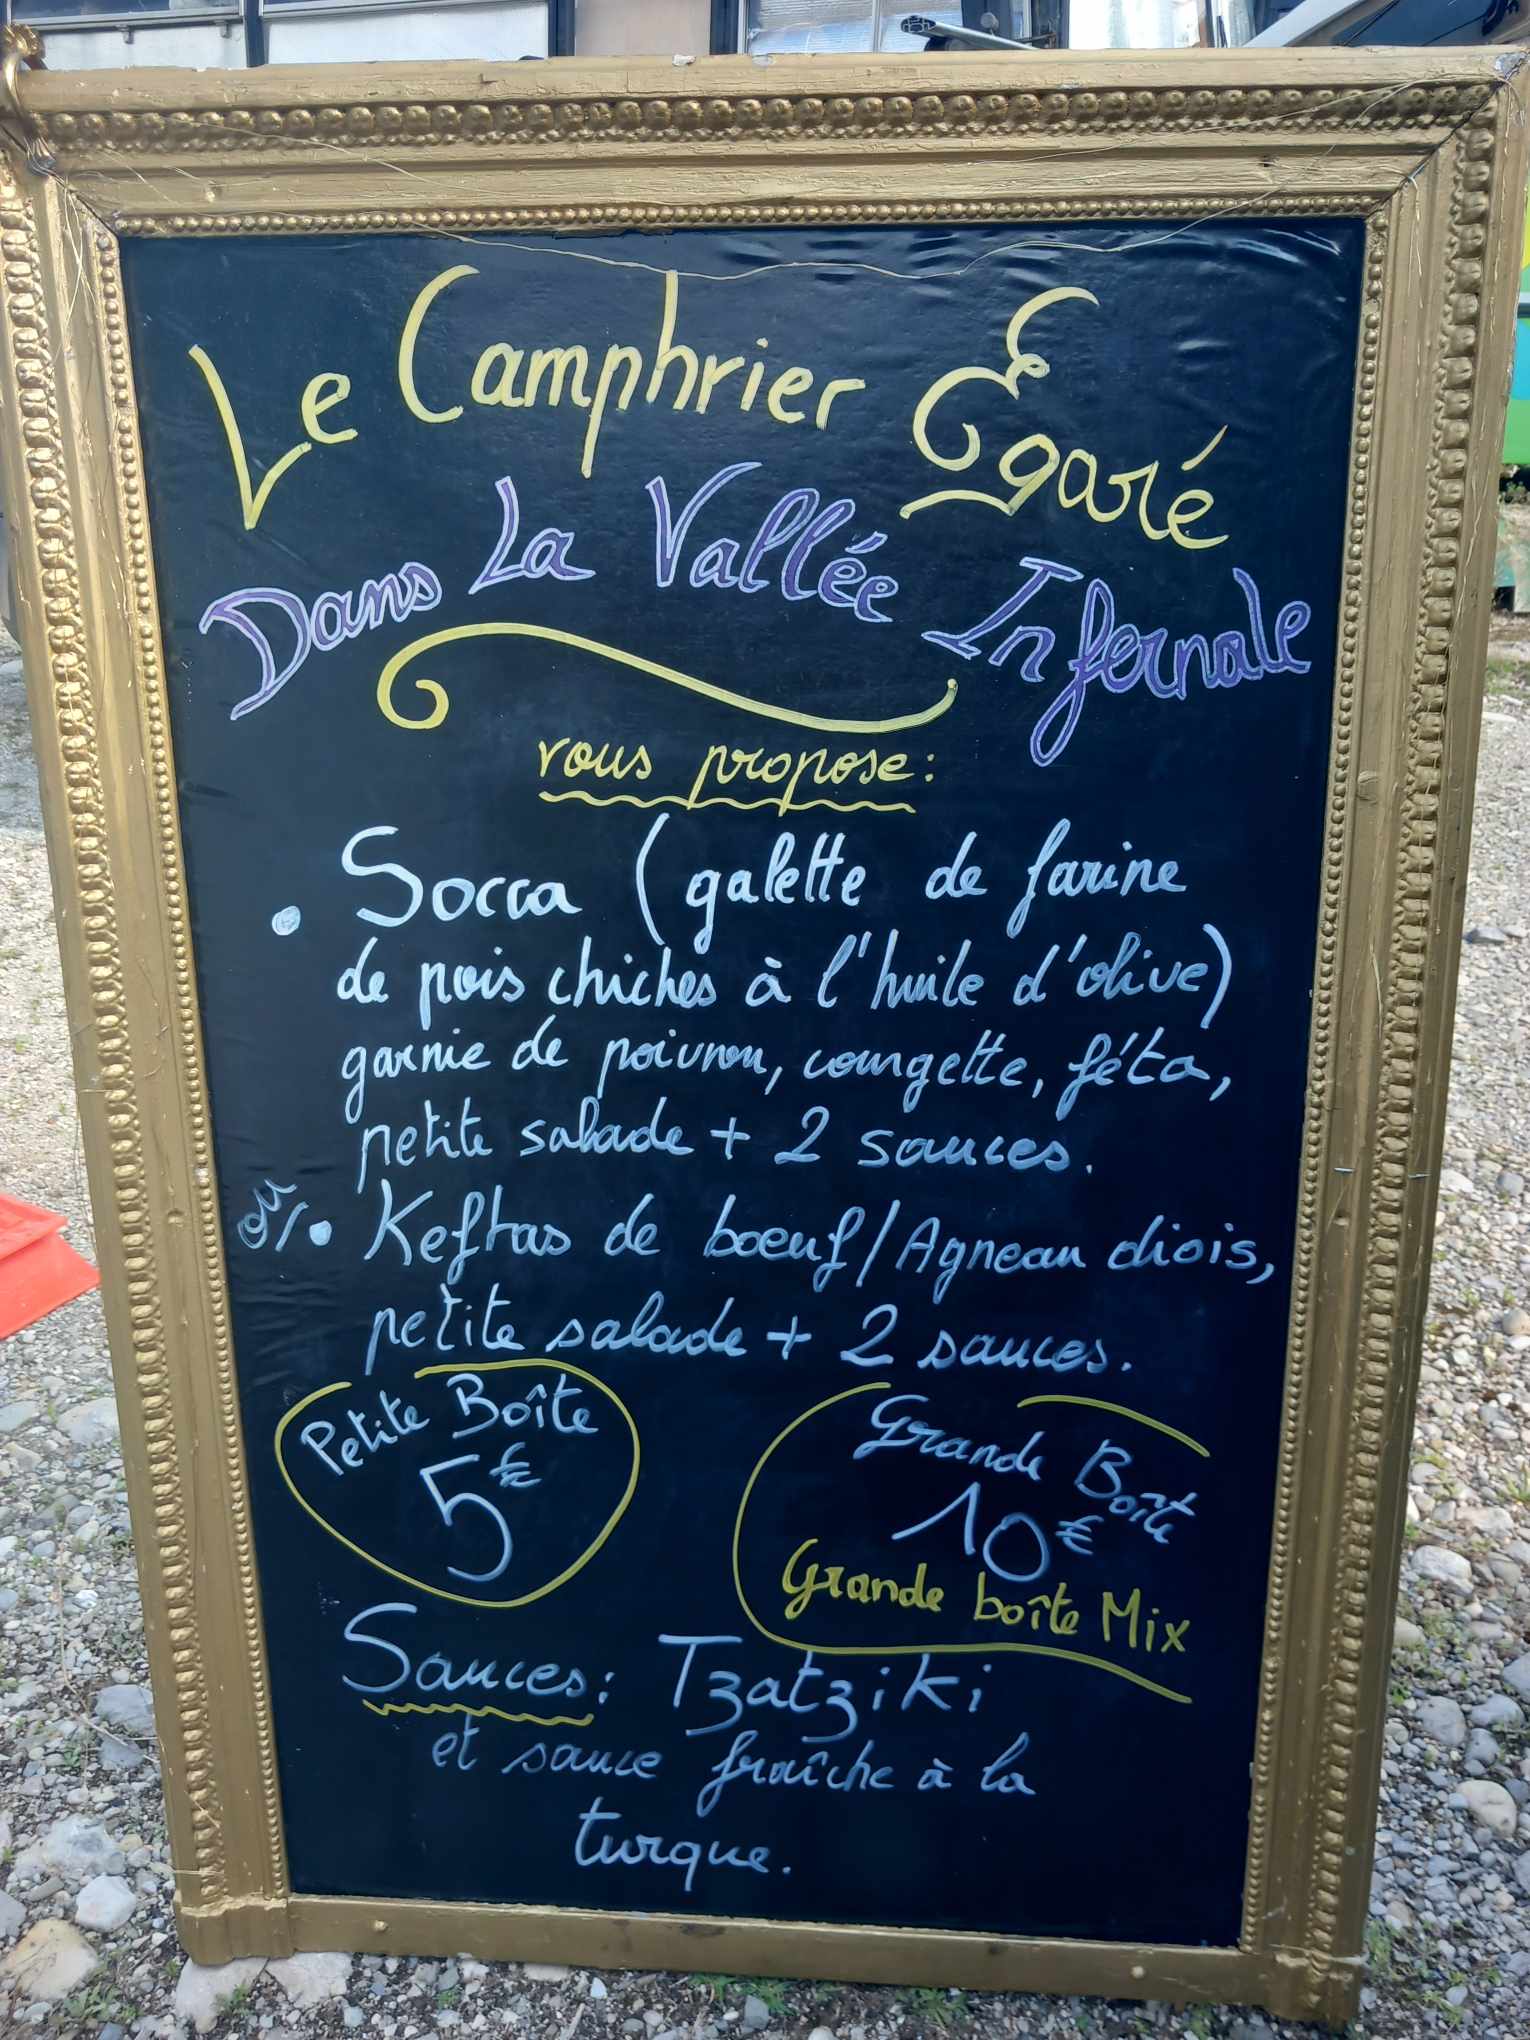 Le Camphrier Egaré
Dans La Vallée Infernale
vous propose:
• Socca (galette de farine
de pois chiches à l'huile d'olive)
garnie de poivron, courgette, féta,
petite salade + 2 sauces.
ou/• Keftas de boeuf/Agneau diois,
petite salade + 2 sauces.
Petite Boîte
5€
Grande Boîte
10€
Grande boîte Mix
Sauces: Tzatziki
et sauce fraîche à la
turque.